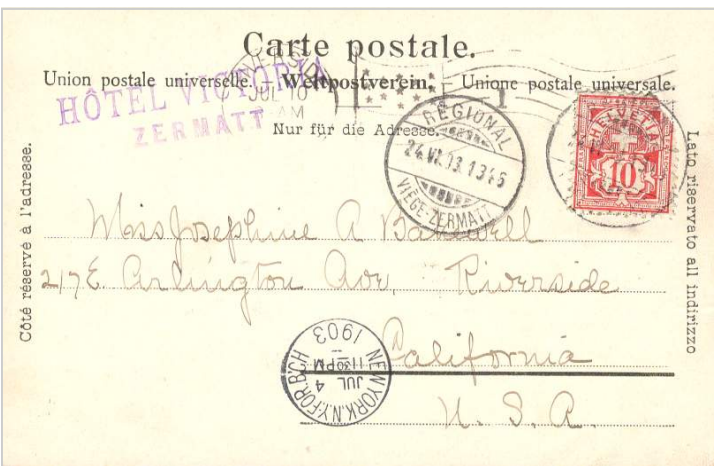 Carte postale.
Union postale universelle. Weltpostverein. Unione postale universale.
HÔTEL VICTORIA
ZERMATT
JUL 10
AM
Nur für die Adresse.
RÉGIONAL
24.VI.03.13 46
VIÈGE-ZERMATT
HELVETIA
10
Côté réservé à l'adresse.
Lato riservato all indirizzo
Miss Josephine A
217 E. Arlington Ave, Riverside
California
U. S. A.
NEW YORK, N.Y. FOR. B'CH
JUL 4
11 30 PM
1903